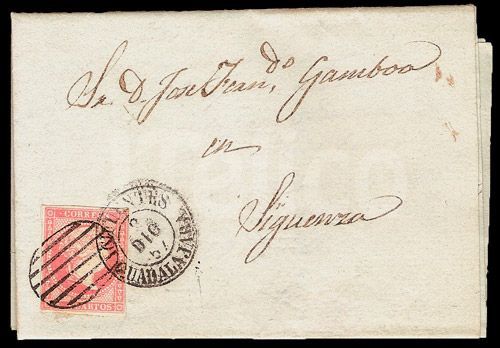 Sr. D. Jose Fern.do Gamboa
en
Sigüenza
CORREOS
CUARTOS
CIFUENTES
DIC
57
GUADALAJARA